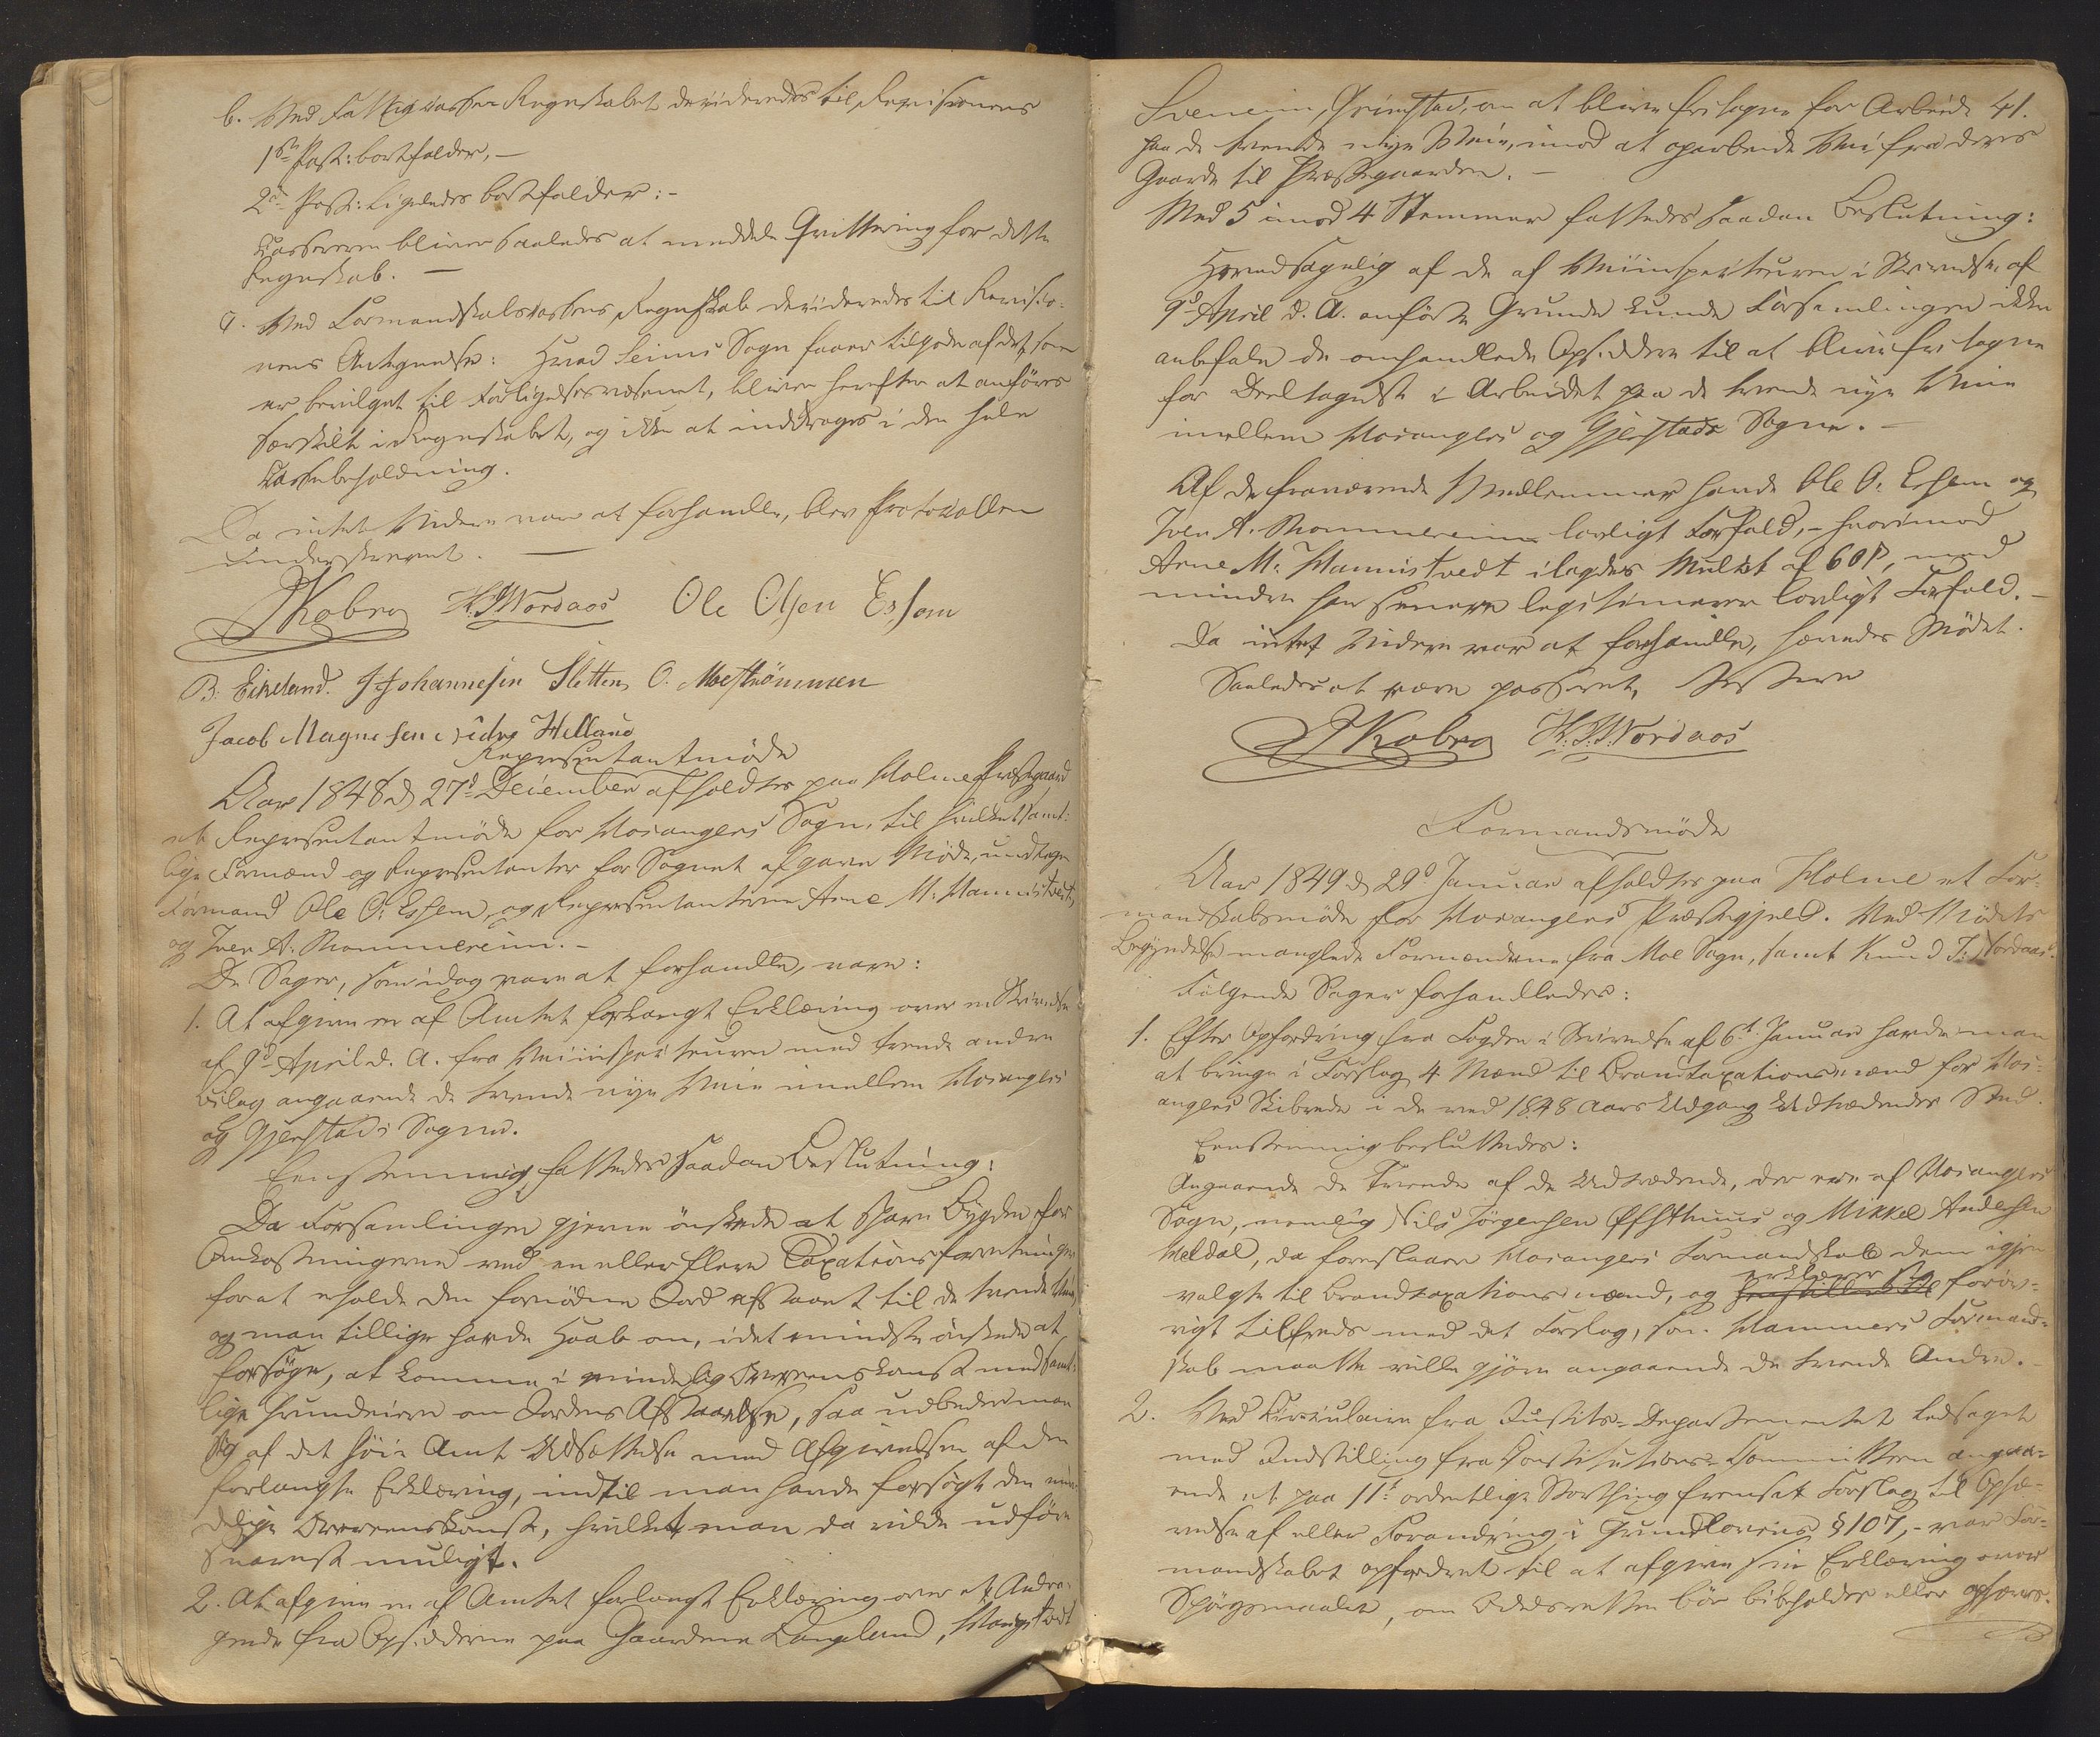 b. Ved Fattigcassens Regnskabet decideredes til Revisionens
1ste Post: bortfalder, —
2de Post: Ligeledes bortfalder: -
Kassereren bliver saaledes at meddele Qvittering for dette
Regnskab. —
Ved Formandskabskassens Regnskab decideredes til Revisio-
nens Antegnelse: Hvad Seims Sogn faaer tilgode af det, som
er bevilget til Forligelsesvæsenet, bliver herefter at anføres
særskilt i Regnskabet, og ikke at inddrages i den hele
Kassebeholdning.
Da intet Videre var at forhandle, blev Protocollen
underskrevet. —
JKobro H. J. Nordaas Ole Olsen Eshem
B. Eikeland. J Johannesen Sletten, O. Moeströmmen
Jacob Magnesen Helland
Representantmøde
Aar 1848 d 27d December afholdtes paa Holme Præstegaard
et Representantmöde for Hosangers Sogn, til hvilket samt-
lige Formænd og Representanter for Sognet afgave Møde, undtagen
Formand Ole O. Eshem, og Representanterne Arne M. Mannistvedt,
og Iver A. Mommereim. -
De Sager, som idag vare at forhandle, vare:
1. At afgive en af Amtet forlangt Erklæring over en Skrivelse
af 9d April d. A. fra Veiinspecteuren med trende andre
Bilag angaaende de tvende nye Veie imellem Hosangers
og Gjerstads Sogne.
Eenstemmig fattedes saadan Beslutning:
Da Forsamlingen gjerne önskede at spare Bygden for
Omkostningerne ved en eller flere Taxationsforretninger
for at erholde den fornødne Jord afstaaet til de tvende Veie,
og man tillige havde Haab om, i det mindste önskede at
forsöge, at komme i mindelig Overeenskomst med samt-
lige Grundeiere om Jordens Afstaaelse, saa udbeder man
sig af det høie Amt Udsættelse med Afgivelsen af den
forlangte Erklæring, indtil man havde forsögt den min-
delige Overeenskomst, hvilket man da vilde udføre
snarest muligt.
2. At afgive en af Amtet forlangt Erklæring over et Andra-
gende fra Opsidderne paa Gaardene Langeland, Mangstedt
Sveneim, Grimstad, om at blive fritagne for Arbeide 41.
paa de tvende nye Veie, imod at oparbeide Vei fra deres
Gaarde til Præstegaarden. —
Med 5 imod 4 Stemmer fattedes saadan Beslutning:
Hovedsagelig af de af Veiinspecteuren i Skrivelse af
9d April d. A. anförte Grunde kunde Forsamlingen ikke
anbefale de omhandlede Opsiddere til at blive fritagne
for Deeltagelse i Arbeidet paa de tvende nye Veie
imellem Hosangers og Gjerstads Sogne. -
Af de fraværende Medlemmer havde Ole O. Eshem og
Iver A. Mommereim lovligt Forfald, - hvorimod
Arne M. Mannistvedt ilagdes Mulkt af 60 ß, med
mindre han senere legitimerer lovligt Forfald. —
Da intet Videre var at forhandle, hævedes Mødet.
Saaledes at være passeret, testere
JKobro H. J. Nordaas
Formandsmøde
Aar 1849 d 29d Januar afholdtes paa Holme et For-
mandskabsmöde for Hosangers Præstegjeld. Ved Mödets
Begyndelse manglede Formændene fra Moe Sogn, samt Knud J. Nordaas.
Fölgende Sager forhandledes:
1. Efter Opfordring fra Fogden i Skrivelse af 6t Januar havde man
at bringe i Forslag 4 Mænd til Brandtaxationsmænd for Hos-
angers Skibrede i de ved 1848 Aars Udgang Udtrædendes Sted.
Eenstemmig besluttedes:
Angaaende de Tvende af de Udtrædende, der ere af Hosangers
Sogn, nemlig Nils Jörgensen Ofsthuus og Mikkel Andersen
Veldal, da foreslaaer Hosangers Formandskab dem igjen
valgte til Brandtaxationsmænd, og erklærer sig forøv-
rigt tilfreds med det Forslag, som Hammers Formand-
skab maatte ville gjøre angaaende de tvende Andre. -
2. Ved Circulaire fra Justits-Departementet ledsaget
med Indstilling fra Constitutions-Committeen angaa-
ende et paa 11te ordentlige Storthing fremsat Forslag til Ophæ-
velse af eller Forandring i Grundlovens § 107, - var For-
mandskabet opfordret til at afgive sin Erklæring over
Spörgsmaalet, om Odelsretten bör bibeholdes eller ophæves.